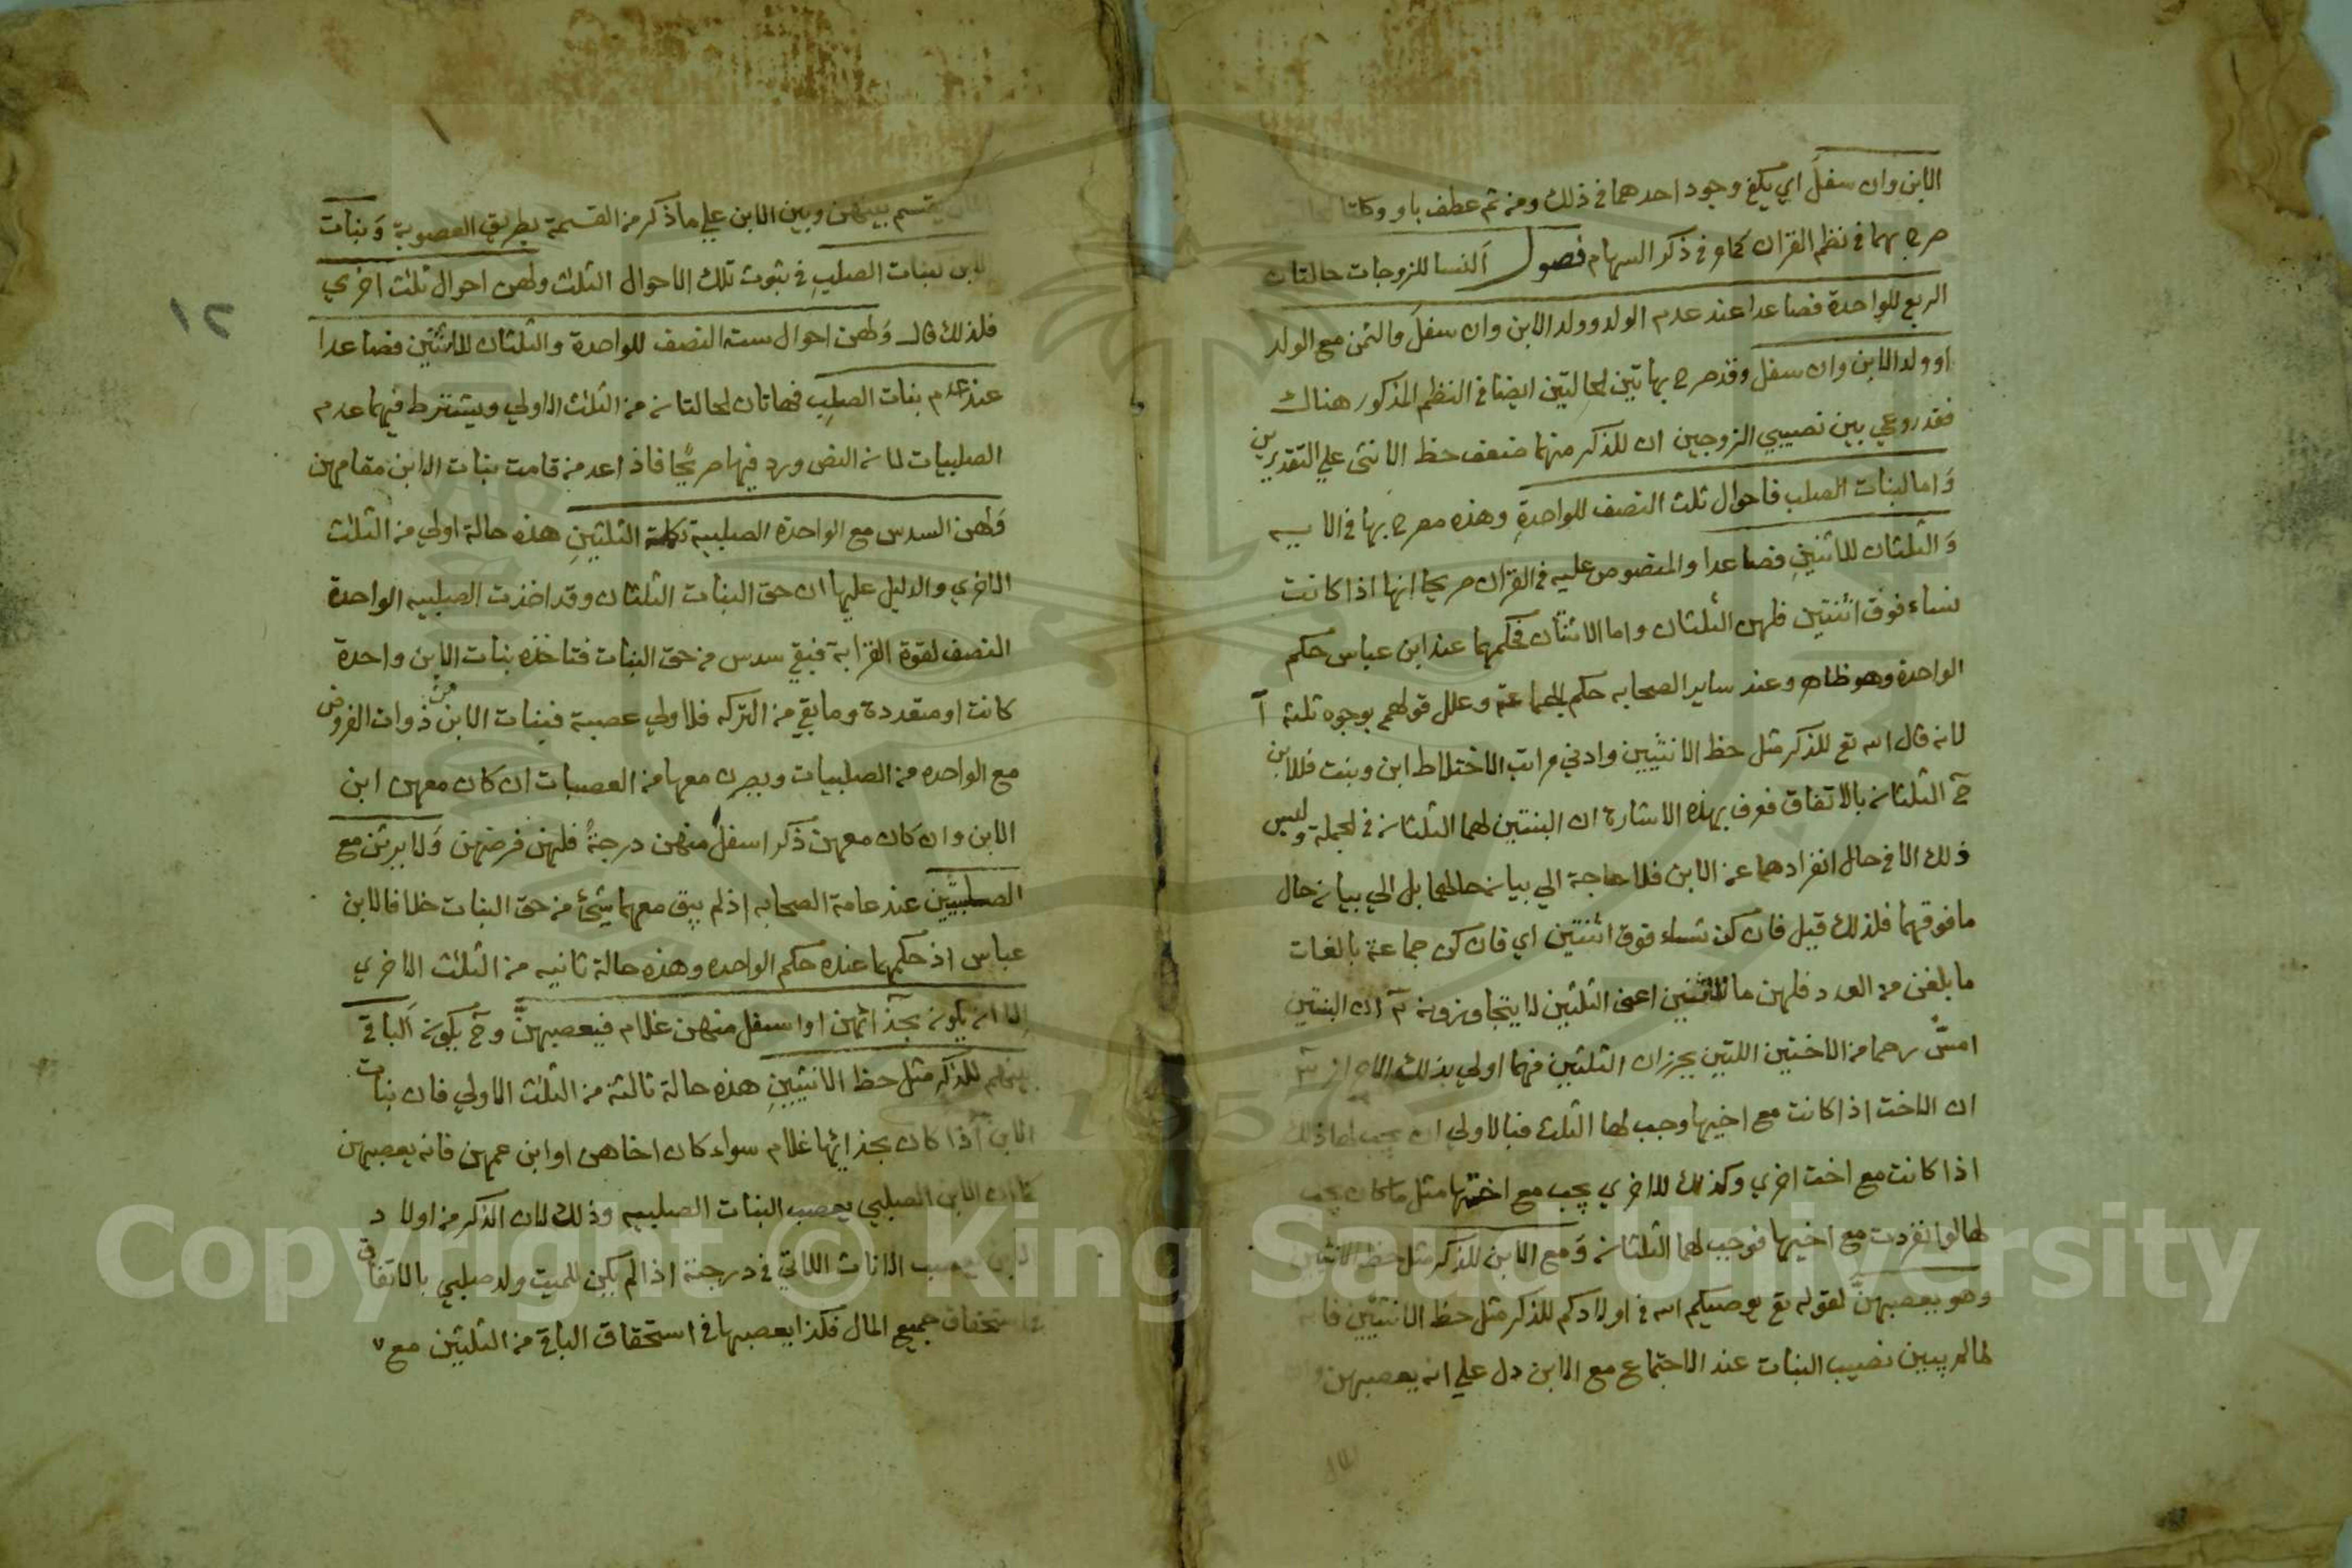 الابن وان سفل اي يكفي وجود احدهما في ذلك ومن ثم عطف باو وكلتا
صرح بهما في نظم القران كما مر في ذكر السهام فصول النسا للزوجات حالتان
الربع للواحدة فصاعدا عند عدم الولد وولد الابن وان سفل والثمن مع الولد
او ولد الابن وان سفل وقد صرح بهاتين الحالتين ايضا في النظم المذكور هناك
فقد روعي بين نصيبي الزوجين ان للذكر منهما ضعف حظ الانثى علي التقديرين
وَاما لبنات الصلب فاحوال ثلث النصف للواحدةِ وهذه مصرح بها في الايه
وَالثلثان للاثنين فصاعدا والمنصوص عليه في القران صريحا انها اذا كانت
نساء فوق اثنتين فلهن الثلثان واما الاثنتان فحكمهما عند ابن عباس حكم
الواحدة وهو ظاهر وعند ساير الصحابه حكم الجماعة وعلل قولهم بوجوه ثلثة آ
لانه قال الله تع للذكر مثل حظ الانثيين وادني مراتب الاختلاط ابن وبنت فللابن
ح الثلثان بالاتفاق فعرف بهذه الاشارة ان البنتين لهما الثلثان في الجملة وليس
ذلك الا في حال انفرادهما عن الابن فلا حاجة الي بيان حالهما بل الي بيان حال
ما فوقهما فلذلك قيل فان كن نساء فوق اثنتين اي فان كن جماعة بالغات
ما بلغن من العدد فلهن ما للاثنتين اعني الثلثين لا يتجاوزونه ان البنتين
امسّ رحما من الاختين اللتين يحرزان الثلثين فهما اولي بذلك
ان الاخت اذا كانت مع اخيها وجب لها الثلث فبالاولي ان يجب لها ذلك
اذا كانت مع اخت اخري وكذلك للاخري يجب مع اختها مثل ما كان يجب
لها لو انفردت مع اخيها فوجب لهما الثلثان وَمع الابن للذكر مثل حظ الانثيين
وهو يعصبهنّ لقوله تع يوصيكم الله في اولادكم للذكر مثل حظ الانثيين فانه
لما لم يبين نصيب البنات عند الاجتماع مع الابن دل علي انه يعصبهن
يقسم بينهن وبين الابن علي ما ذكر من القسمة بطريق العصوبة وَبنات
الابن كبنات الصلبِ في ثبوت تلك الاحوال الثلث ولهن احوال ثلث اخري
فلذلك قال وَلهن احوال ستة النصف للواحدة والثلثان للاثنتين فصاعدا
عند عدم بنات الصلبِ فهاتان الحالتان من الثلث الاولي ويشترط فيهما عدم
الصلبيات لان النص ورد فيها صريحًا فاذا عدمن قامت بنات الابن مقامهن
وَلهن السدس مع الواحدة الصلبية تكملة الثلثينِ هذه حالة اولي من الثلث
الاخري والدليل عليها ان حق البنات الثلثان وقد اخذت الصلبيه الواحدة
النصف لقوة القرابة فبقي سدس من حق البنات فتاخذه بنات الابن واحدة
كانت او متعددة وما بقي من التركه فلاولي عصبة فبنات الابن من ذوات الفروض
مع الواحده من الصلبيات ويصرن معها من العصبات ان كان معهن ابن
الابن وان كان معهن ذكر اسفل منهن درجةً فلهن فرضهن وَلا يرثن مع
الصلبيتين عند عامة الصحابه اذ لم يبق معهما شيئ من حق البنات خلافا لابن
عباس اذ حكمهما عنده حكم الواحده وهذه حالة ثانيه من الثلث الاخري
الا ان يكون بحذائهن او اسفل منهن غلام فيعصبهنّ وح يكون اَلباقي
بينهم للذكر مثل حظ الانثيينِ هذه حالة ثالثة من الثلث الاولي فان بنات
الابن اذا كان بحذائها غلام سواء كان اخاهن او ابن عمهن فانه يعصبهن
كما ان الابن الصلبي يعصب البنات الصلبيه وذلك لان الذكر من اولاد
الابن يعصب الاناث اللاتي في درجته اذا لم يكن للميت ولد صلبي بالاتفاق
في استحقاق جميع المال فكذا يعصبها في استحقاق الباقي من الثلثين مع
٢١
Copyright © King Saud University
1957